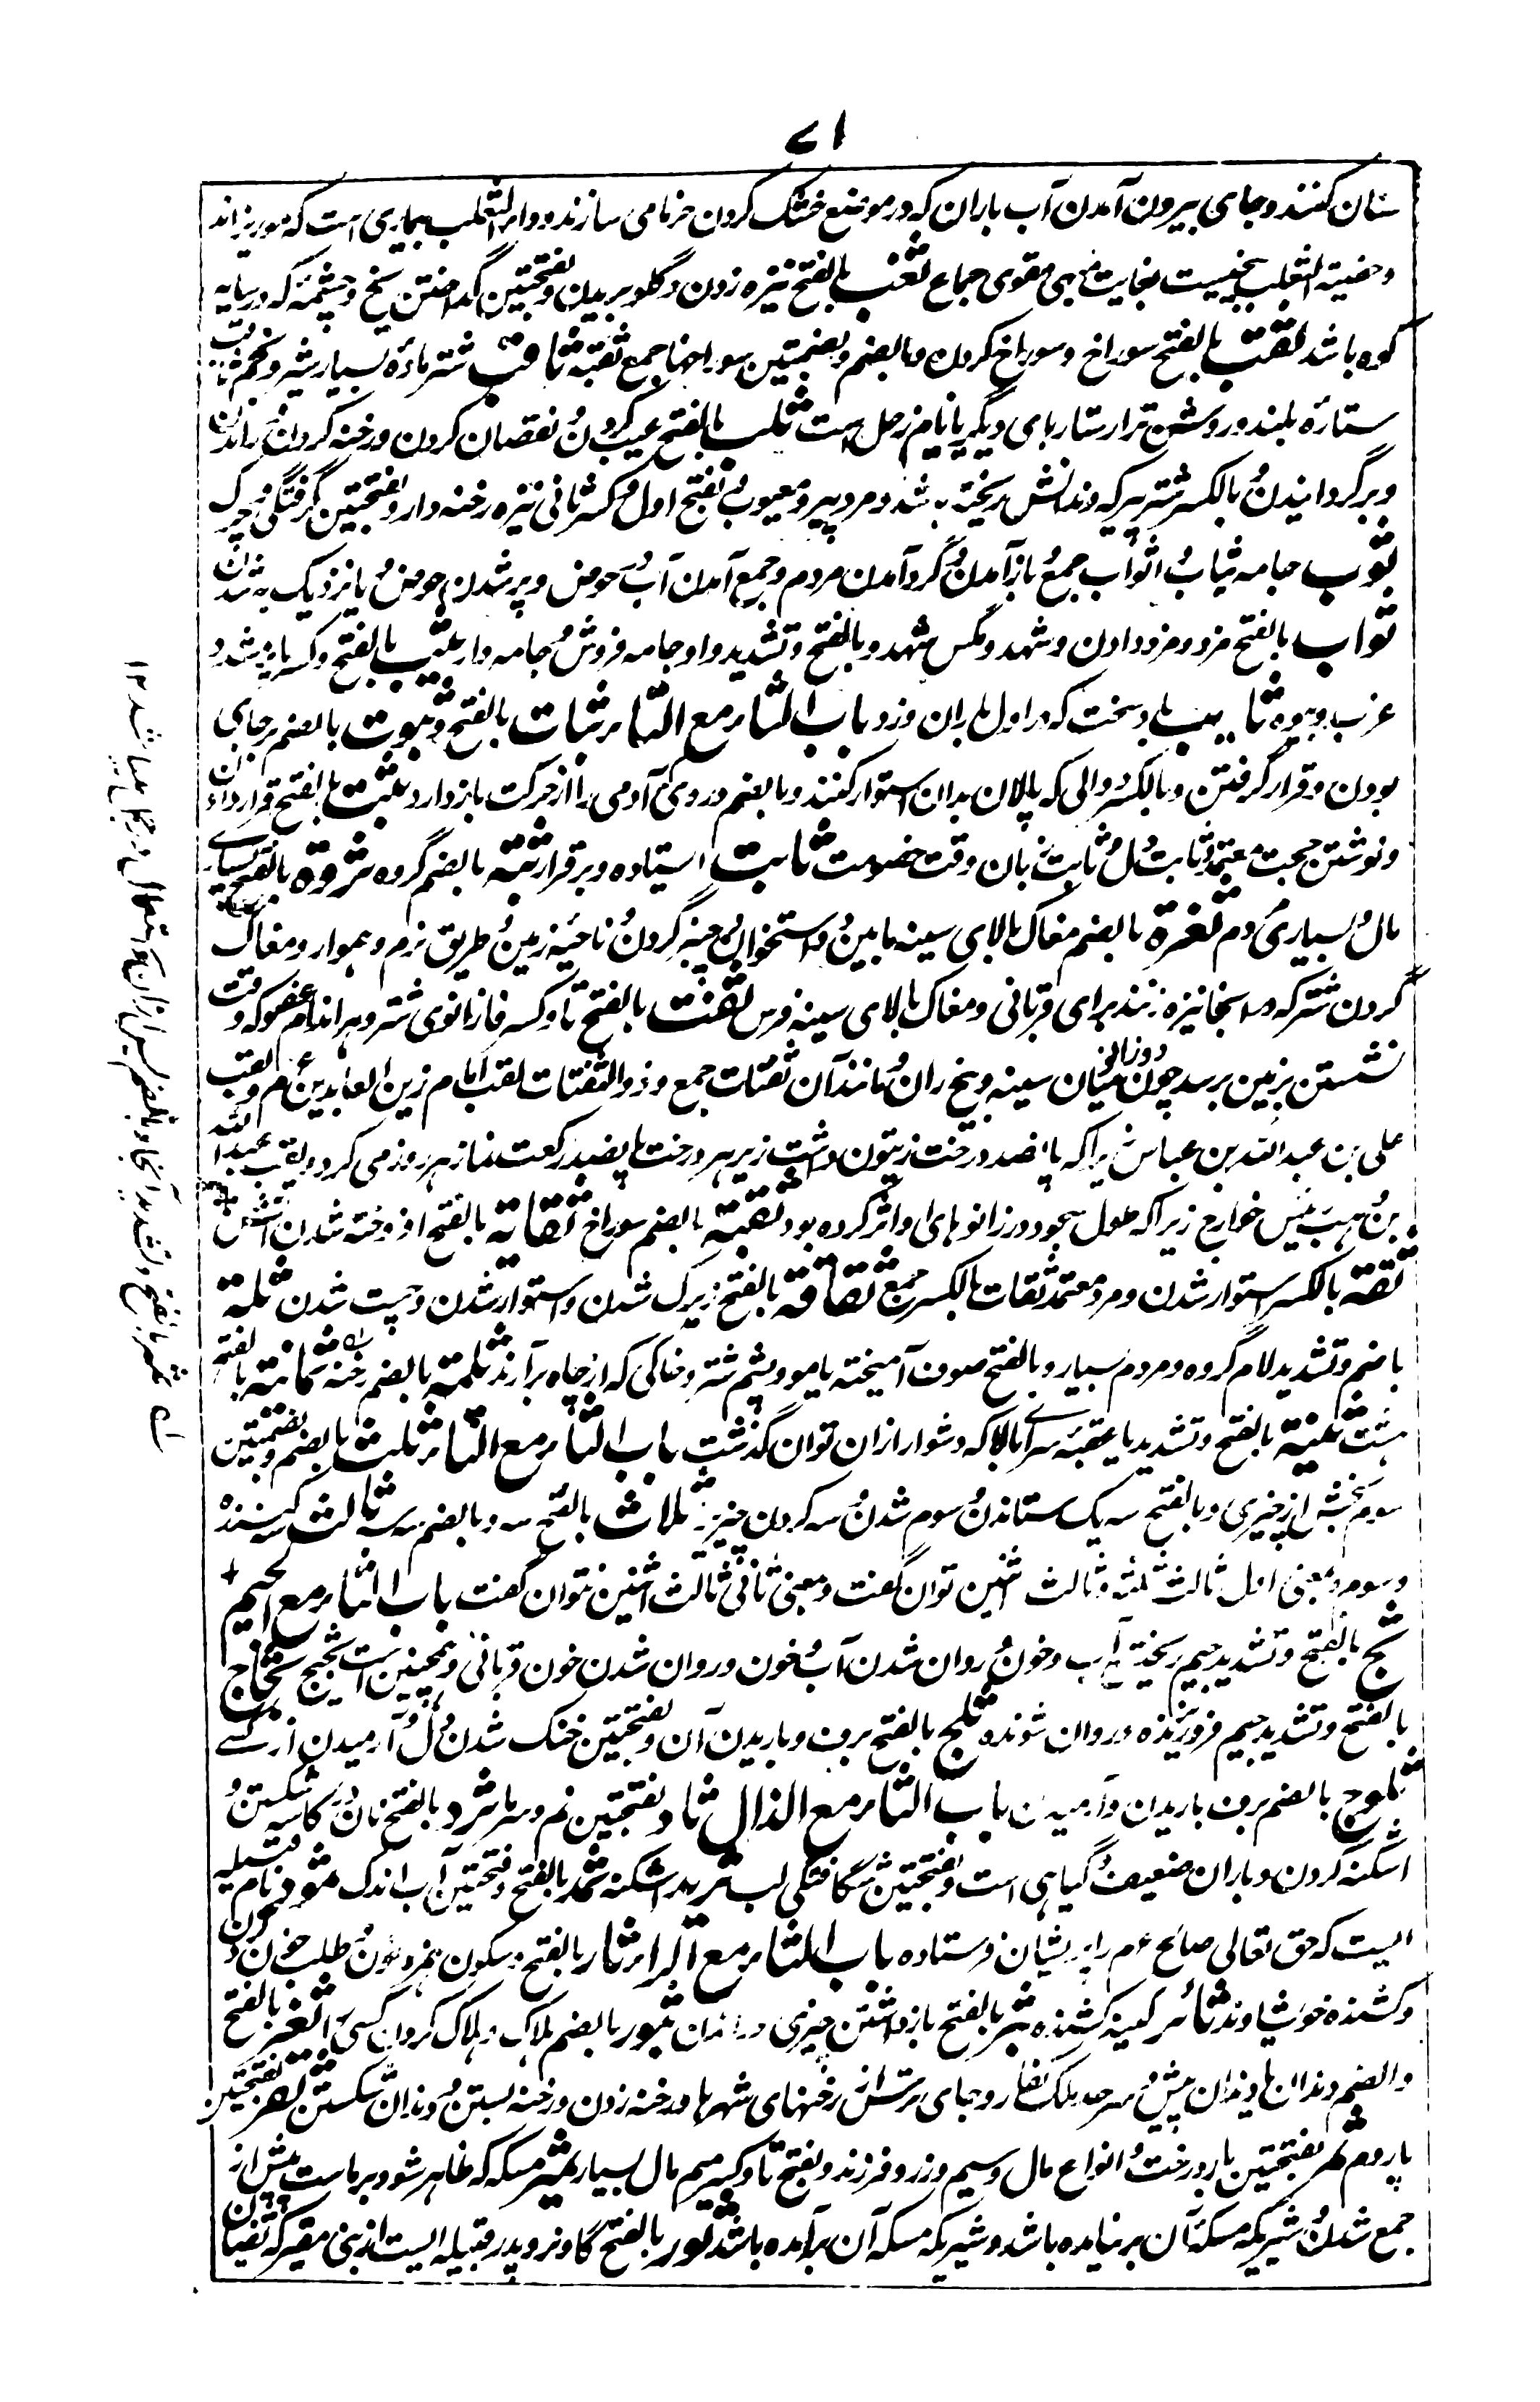 ۷۱
سنان کنند و جای بیرون آمدن آب باران که در موضع خشک کردن خرما می سازند و داء الثعلب بیماری است که موریزاند
و خصیة الثعلب بیخیست بغایت مبهی مقوی جماع ثعب بالفتح نیزه زدن و گلو بریدن و بفتحتین گداختن یخ و چشمه که در سایه
کوه باشد ثقب بالفتح سوراخ و سوراخ کردن و بالضم و بضمتین سوراخها جمع ثقبه ثاقب شتر ماده بسیار شیر و نجم ثاقب
ستاره بلند و روشن تر از ستارهای دیگر یا نام زحل است ثلب بالفتح عیب کردن و نقصان کردن و رخنه کردن و راندن
و برگردانیدن و بالکسر شتر پیر که دندانش ریخته باشد و مرد پیر و معیوب و بفتح اول و کسر ثانی نیزه رخنه دار و بفتحتین گرفتگی و چرک
ثوب جامه ثیاب و اثواب جمع و باز آمدن و گرد آمدن مردم و جمع آمدن آب حوض و پر شدن حوض و یا نزدیک به شدن
ثواب بالفتح مزد و مزد دادن و شهد و مگس شهد و بالفتح و تشدید واو جامه فروش و جامه دار ثیب بالفتح و کسر یا مشدد
عزب و بیوه ثایب باد سخت که در اول باران وزد باب الثاء مع التاء ثبات بالفتح و ثبوت بالضم بر جای
بودن و قرار گرفتن و بالکسر دوالی که پالان بدان استوار کنند و بالضم دردی که آدمی را از حرکت باز دارد ثبت بالفتح قرار دادن
و نوشتن حجت معتمد و ثابت دل و ثابت زبان وقت خصومت ثابت استاده و برقرار ثبته بالضم گروه ثروة بالفتح بسیاری
مال و بسیاری مردم ثغرة بالضم مغاک بالای سینه مابین دو استخوان چنبر گردن و ناحیه زمین و طریق نرم و هموار و مغاک
گردن شتر که در اینجا نیزه زنند برای قربانی و مغاک بالای سینه فرس ثفنت بالفتح ثا و کسر فا زانوی شتر و هر اندام و عضو که وقت
نشستن بزمین برسد چون دو زانو میان سینه و بیخ ران و مانند آن ثفنات جمع و ذو الثفنات لقب امام زین العابدین ع م و لقب
علی بن عبد الله بن عباس زیرا که پانصد درخت زیتون داشت زیر هر درخت پانصد رکعت نماز هر روز می کرد و لقب عبد الله
بن وهب رئیس خوارج زیرا که طول سجود در زانوهای او اثر کرده بود ثقبة بالضم سوراخ ثقابة بالفتح افروخته شدن آتش
ثقة بالکسر استوار شدن و مرد معتمد ثقات بالکسر جمع ثقافة بالفتح زیرک شدن و استوار شدن و چست شدن ثلة
باضم و تشدید لام گروه و مردم بسیار و بالفتح صوف آمیخته با مو و پشم شتر و خاکی که از چاه برآرند ثلمة بالضم رخنه ثمانیة بالفتح
هشت ثنیة بالفتح و تشدید یا عقبه سر بالا که دشوار از آن توان گذشت باب الثاء مع الثاء ثلث بالضم و بضمتین
سوم بخش از چیزی و بالفتح سه یک ستاندن و سوم شدن و سه کردن چیزی ثلاث بالفتح سه و بالضم سه سه ثالث سه کننده
و سوم و بمعنی اول ثالث ثلثه و ثالث اثنین توان گفت و بمعنی ثانی ثالث اثنین نتوان گفت باب الثاء مع الجیم
ثج بالفتح و تشدید جیم ریختن آب و خون و روان شدن آب و خون و روان شدن خون قربانی و همچنین است ثجیج ثجاج
بالفتح و تشدید جیم فروریزنده و روان شونده ثلج بالفتح برف و باریدن آن و بفتحتین خنک شدن دل و آرمیدن از کسے
ثلوج بالضم برف باریدن و آرمیدن باب الثاء مع الدال ثاد بفتحتین نم و سرما ثرد بالفتح نان در کاسه شکستن و
اشکنه کردن و باران ضعیف و گیاهی است و بفتحتین شگافتگی لب ثرید اشکنه ثمد بالفتح و فتحتین آب اندک ثمود نام قبیله
ایست که حق تعالی صالح ع م را بر ایشان فرستاده باب الثاء مع الراء ثار بالفتح و سکون همزه خون و طلب خون کردن
و کشنده خویشاوند ثائر کینه کشنده ثبر بالفتح باز داشتن چیزی و راندن ثبور بالضم هلاک و هلاک کردن کسی ثغر بالفتح
والضم دندان یا دندان پیش و سرحد ملک کفار و جای ترس از رخنهای شهرها و رخنه زدن و رخنه بستن و دندان شکستن ثفر بفتحتین
پاردم ثمر بفتحتین بار درخت و انواع مال و سیم و زر و فرزند و بفتح ثا و کسر میم مال بسیار ثمیر مسکه که ظاهر شود بر ماست پیش از
جمع شدن و شیریکه مسکه آن بر نیامده باشد و شیریکه مسکه آن برآمده باشد ثور بالفتح گاو نر و پدر قبیله ایست از بنی مضر که سفیان